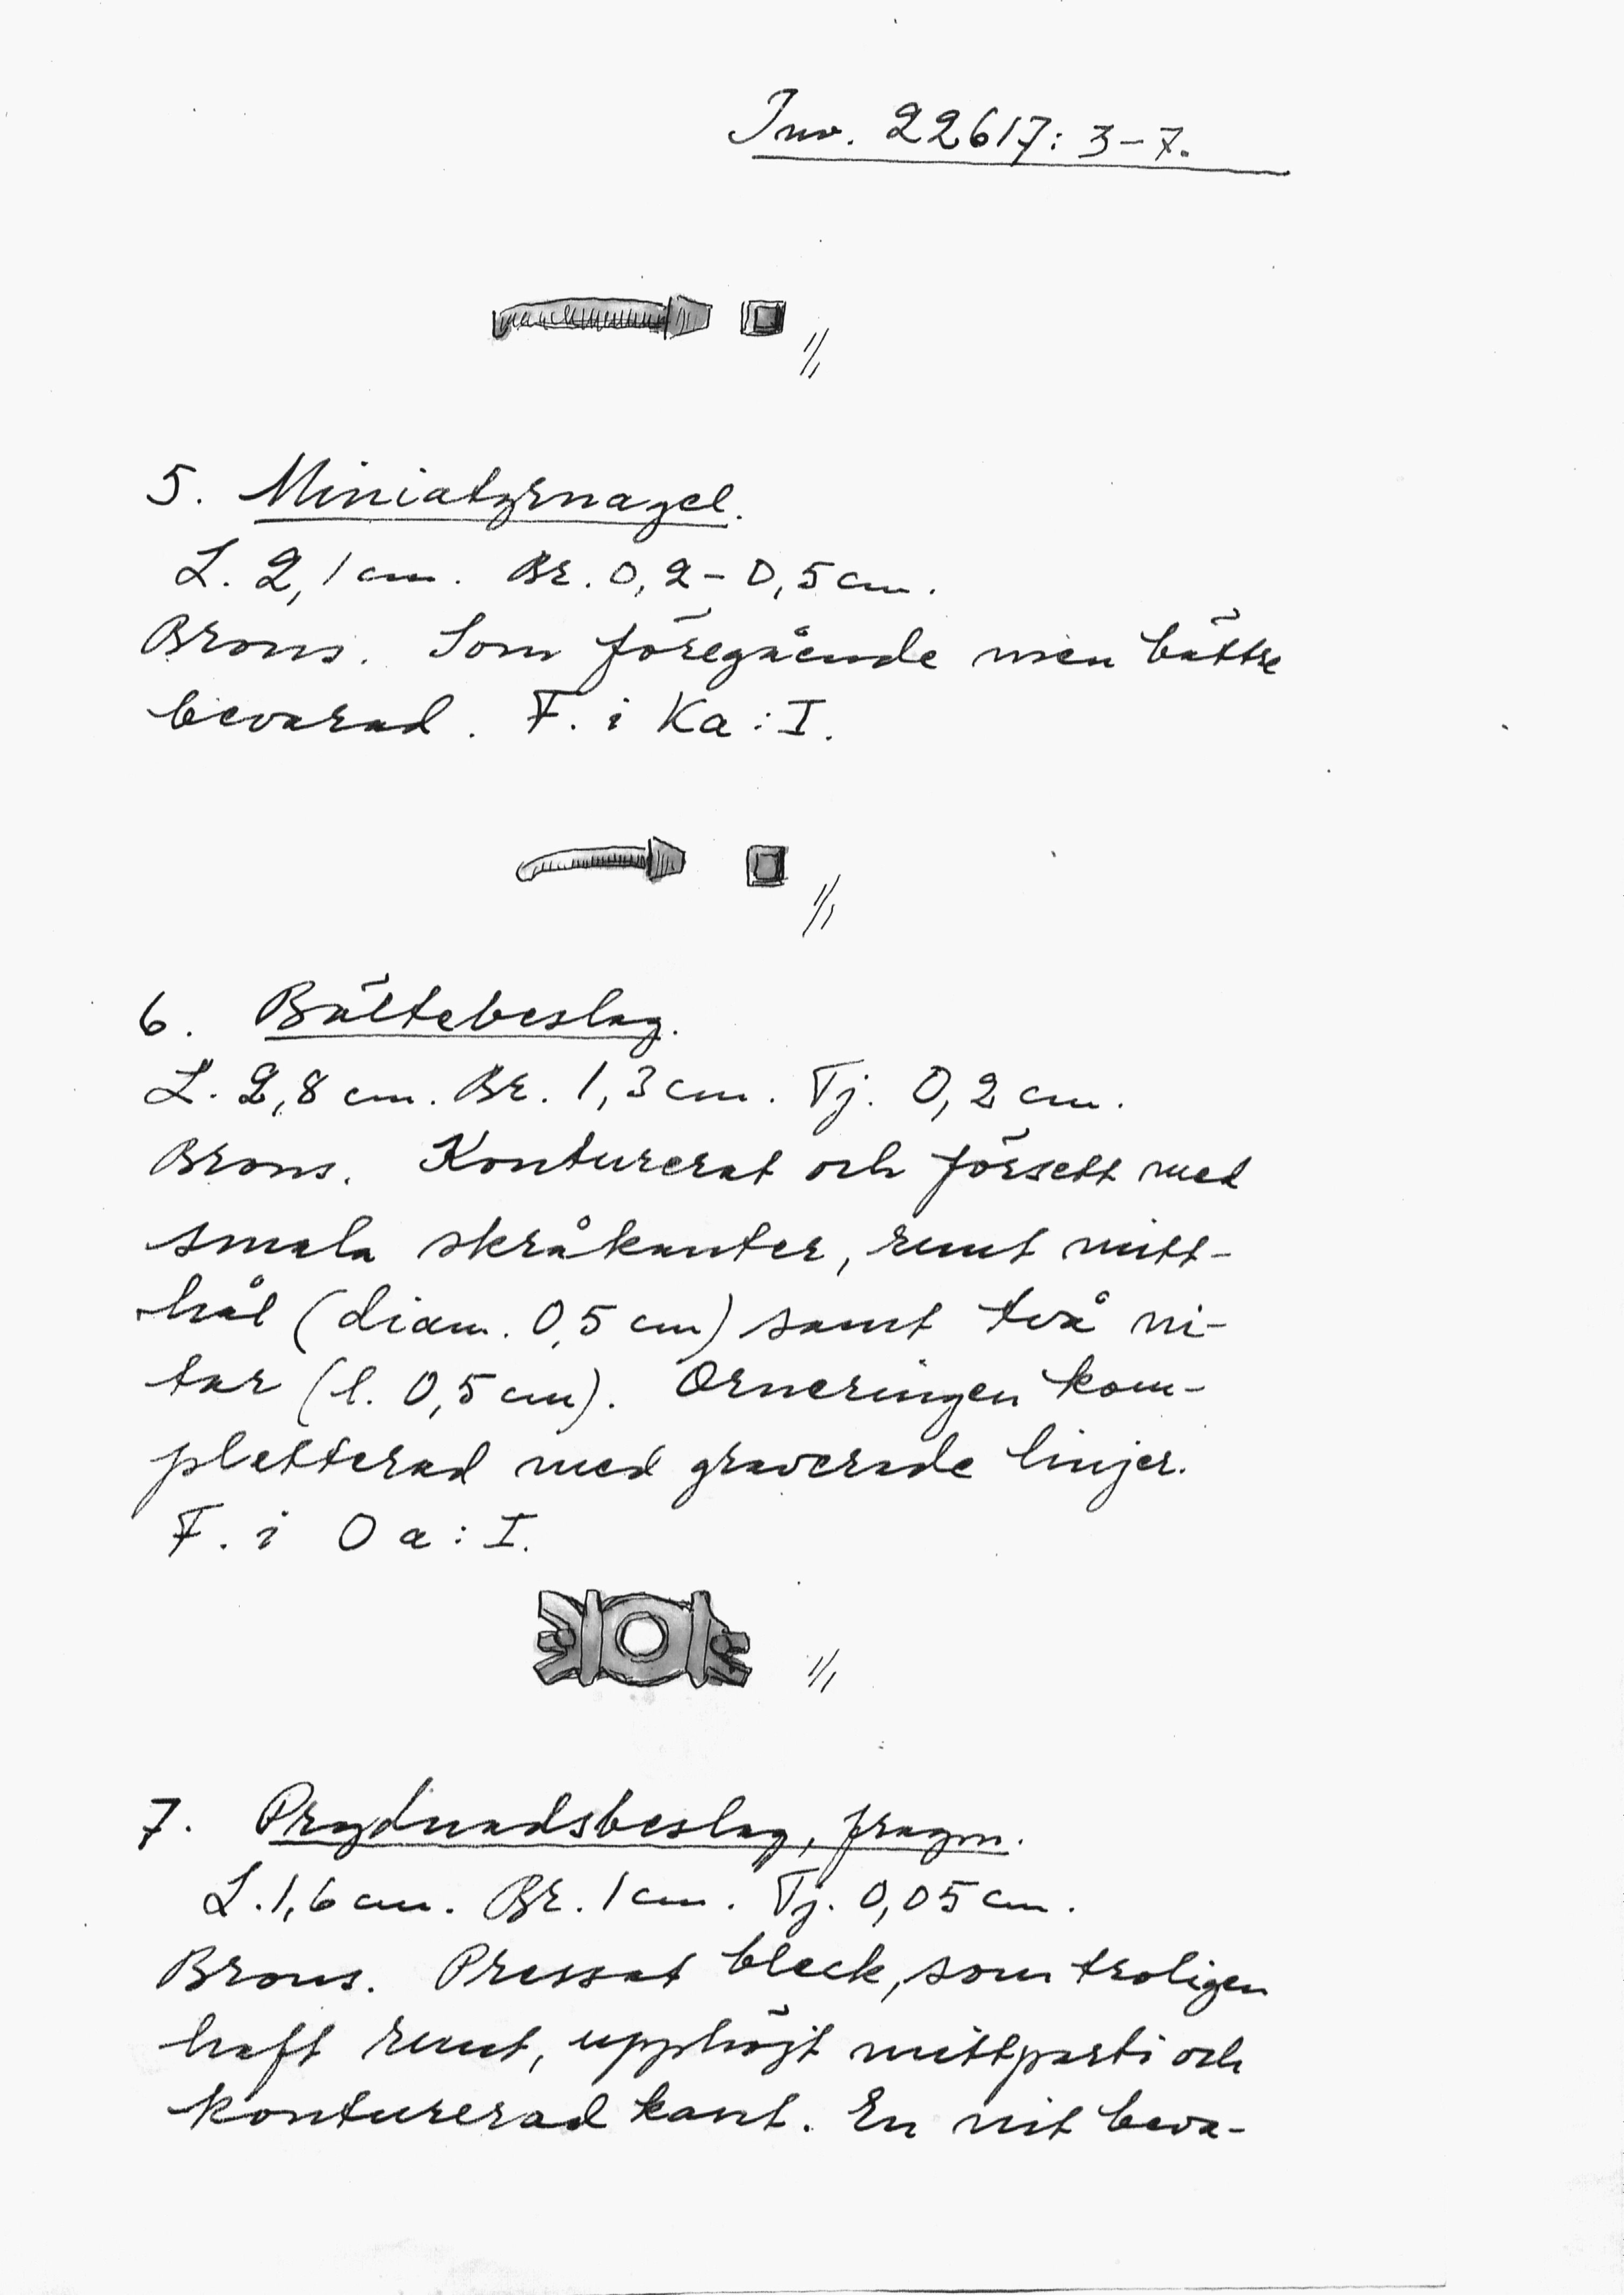 Inv. 22617: 3-7.
1/1
5. Miniatyrnagel.
L. 2,1 cm. Br. 0,2-0,5 cm.
Brons. Som föregående men bättre
bevarad. F. i Ka:I.
1/1
6. Bältebeslag.
L. 2,8 cm. Br. 1,3 cm. Tj. 0,2 cm.
Brons. Konturerat och försett med
smala skråkanter, runt mitt-
hål (diam. 0,5 cm) samt två ni-
tar (l. 0,5 cm). Orneringen kom-
pletterad med graverade linjer.
F. i Oa:I.
1/1
7. Prydnadsbeslag, fragm.
L. 1,6 cm. Br. 1 cm. Tj. 0,05 cm.
Brons. Pressat bleck, som troligen
haft runt, upphöjt mittparti och
konturerad kant. En nit beva-